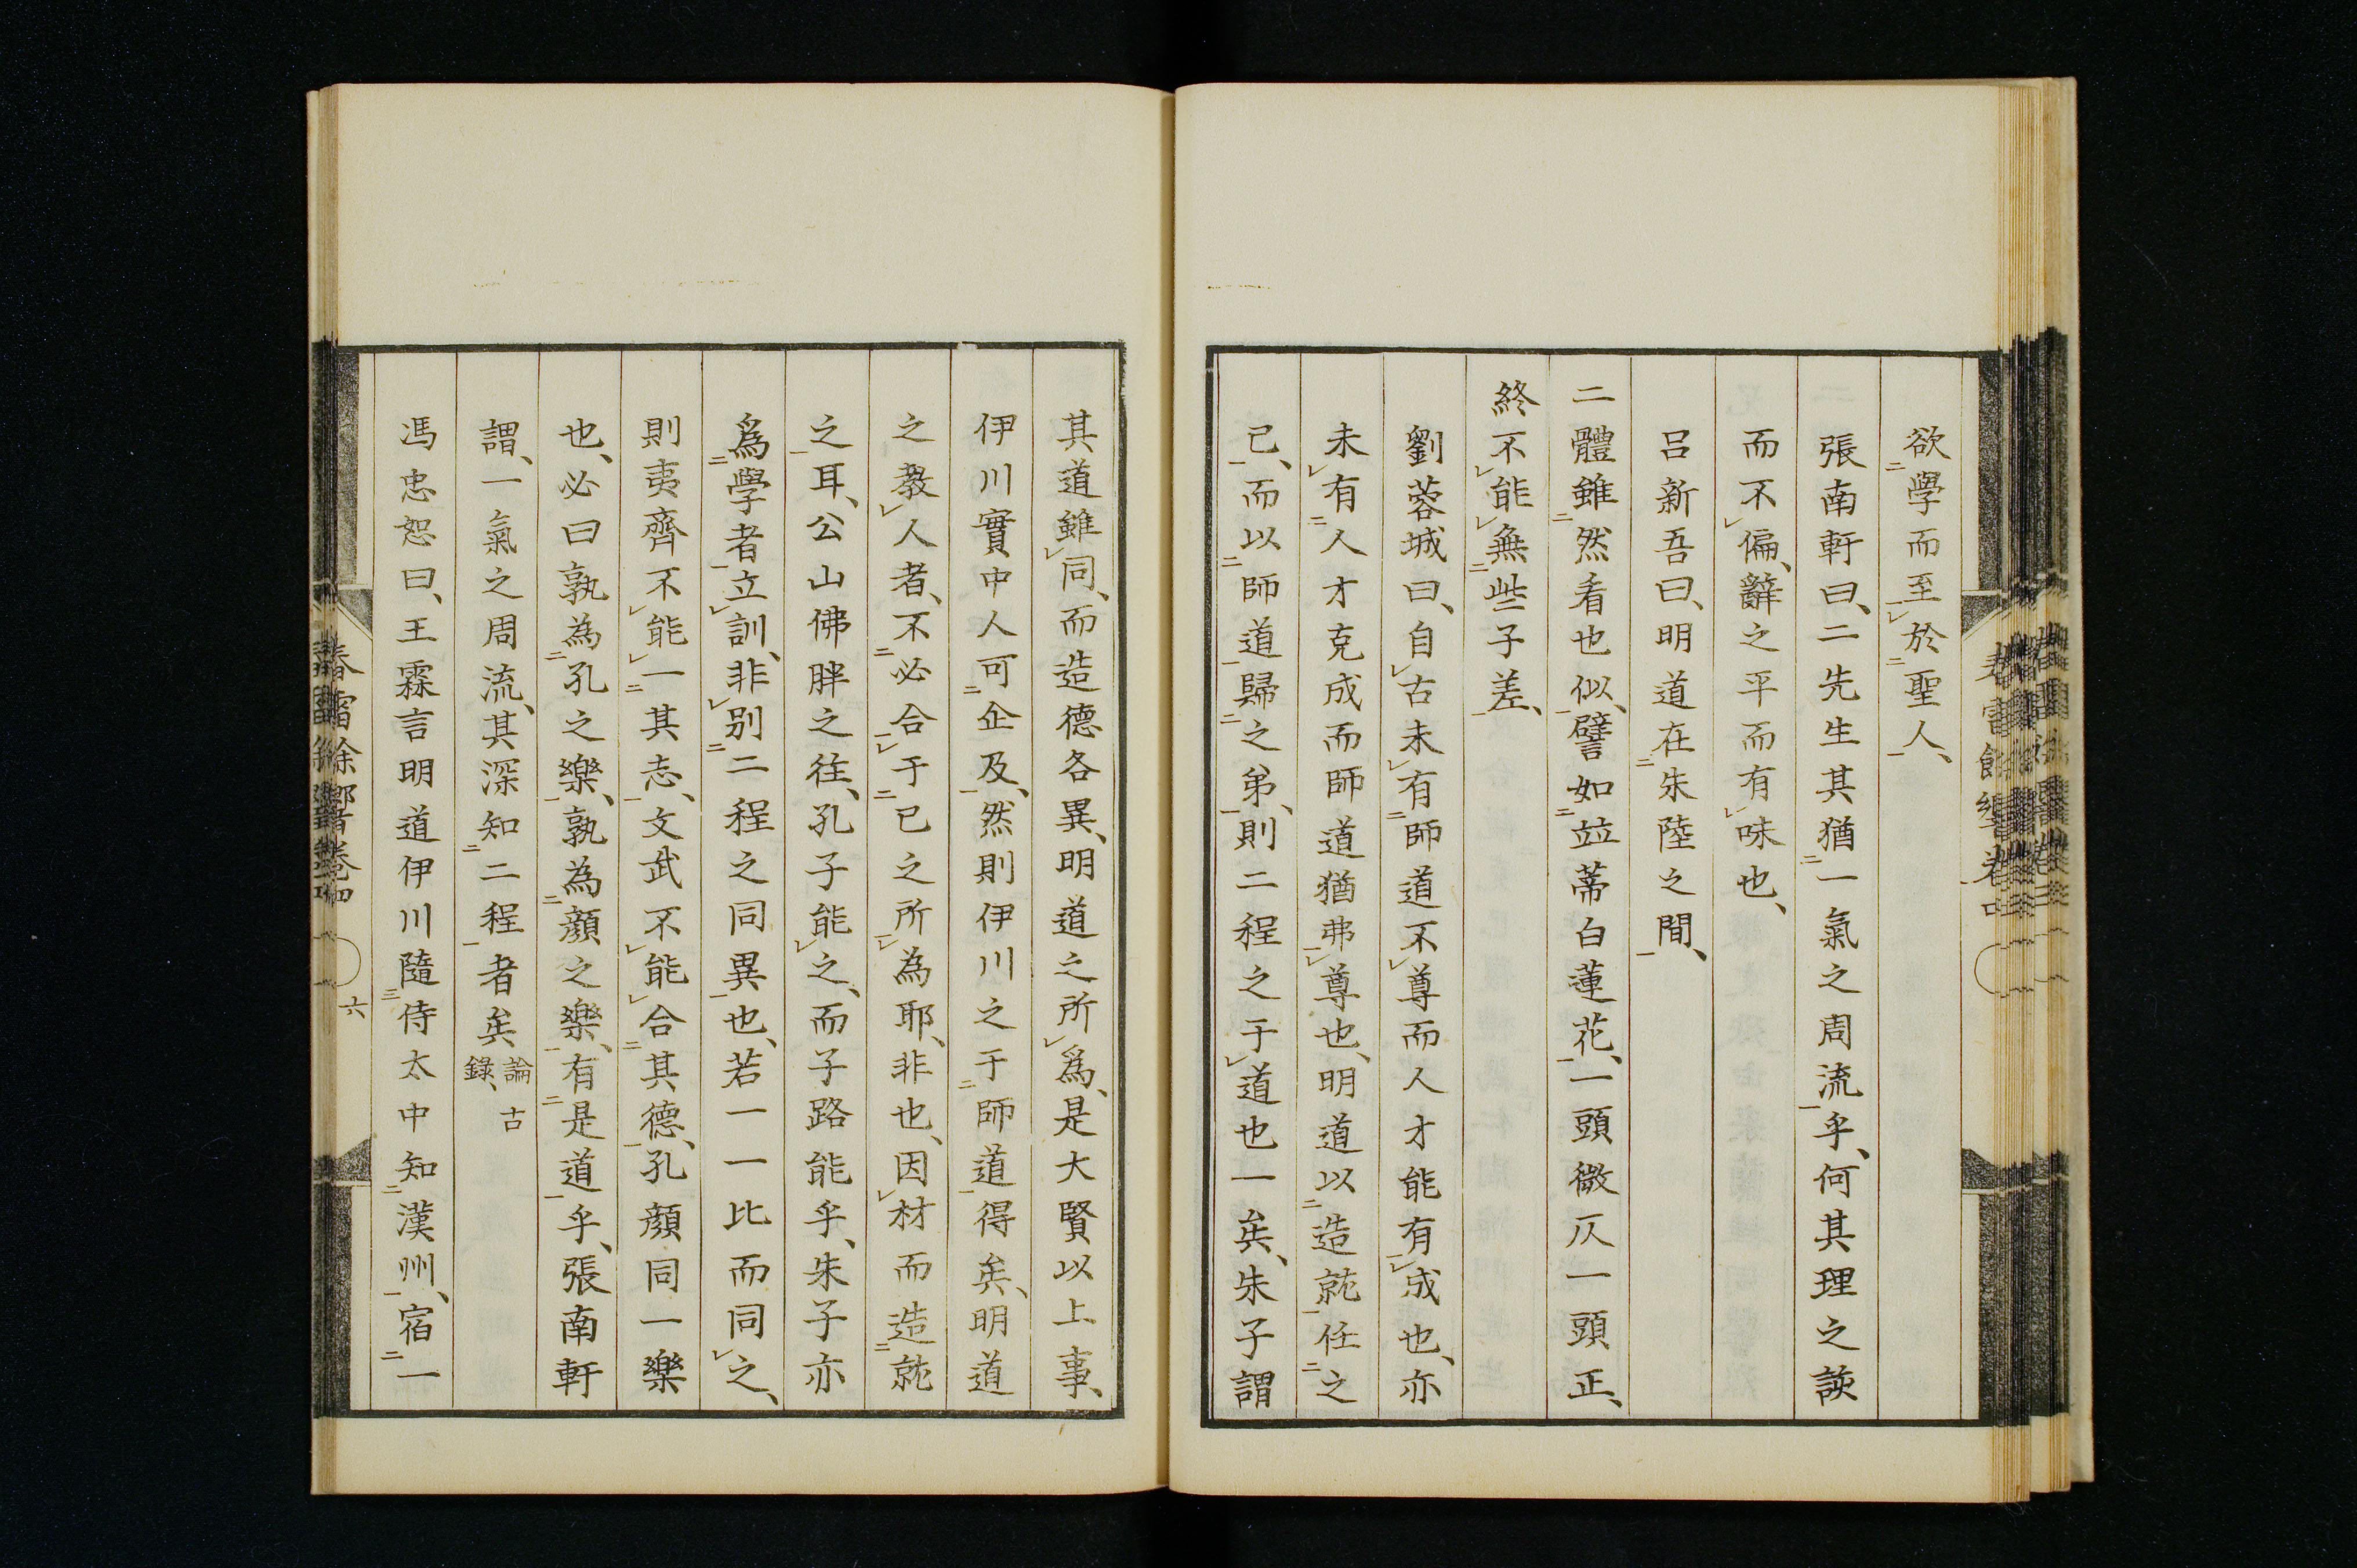 欲學而至於聖人、
張南軒曰、二先生其猶一氣之周流乎、何其理之談
而不偏、辭之平而有味也、
呂新吾曰、明道在朱陸之間、
二體雖然看也似、譬如竝蔕白蓮花、一頭微仄一頭正、
終不能無些子差、
劉蓉城曰、自古未有師道不尊而人才能有成也、亦
未有人才克成而師道猶弗尊也、明道以造就任之
己、而以師道歸之弟、則二程之于道也一矣、朱子謂
其道雖同、而造德各異、明道之所爲、是大賢以上事、
伊川實中人可企及、然則伊川之于師道得矣、明道
之教人者、不必合于己之所為耶、非也、因材而造就
之耳、公山佛肸之往、孔子能之、而子路能乎、朱子亦
爲學者立訓、非別二程之同異也、若一一比而同之、
則夷齊不能一其志、文武不能合其德、孔顏同一樂
也、必曰孰為孔之樂、孰為顏之樂、有是道乎、張南軒
謂、一氣之周流、其深知二程者矣、論古錄、
馮忠恕曰、王霖言明道伊川隨侍太中知漢州、宿一
六